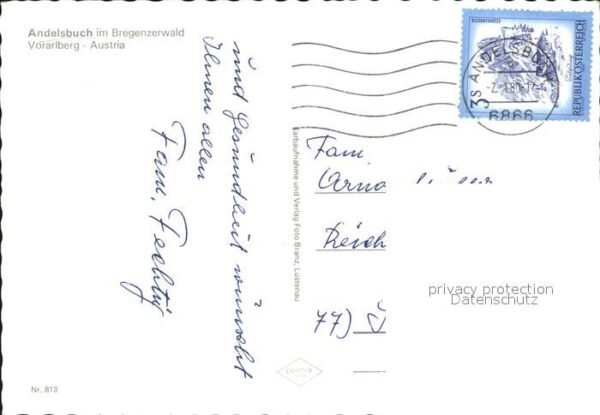 Andelsbuch im Bregenzerwald
Vorarlberg - Austria
und Gesundheit wünscht
Ihnen allen
Fam.
Farbaufnahme und Verlag Foto Branz, Lustenau
3S
REPUBLIK ÖSTERREICH
ANDELSBUCH
6866
Fam.
Arno
Reich
77)
privacy protection
Datenschutz
Nr. 813